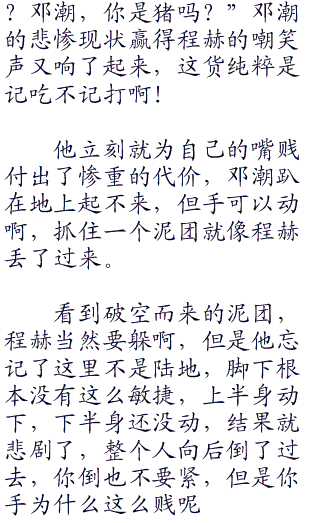 ？邓潮，你是猪吗？”邓潮
的悲惨现状赢得程赫的嘲笑
声又响了起来，这货纯粹是
记吃不记打啊！
他立刻就为自己的嘴贱
付出了惨重的代价，邓潮趴
在地上起不来，但手可以动
啊，抓住一个泥团就像程赫
丢了过来。
看到破空而来的泥团，
程赫当然要躲啊，但是他忘
记了这里不是陆地，脚下根
本没有这么敏捷，上半身动
下，下半身还没动，结果就
悲剧了，整个人向后倒了过
去，你倒也不要紧，但是你
手为什么这么贱呢